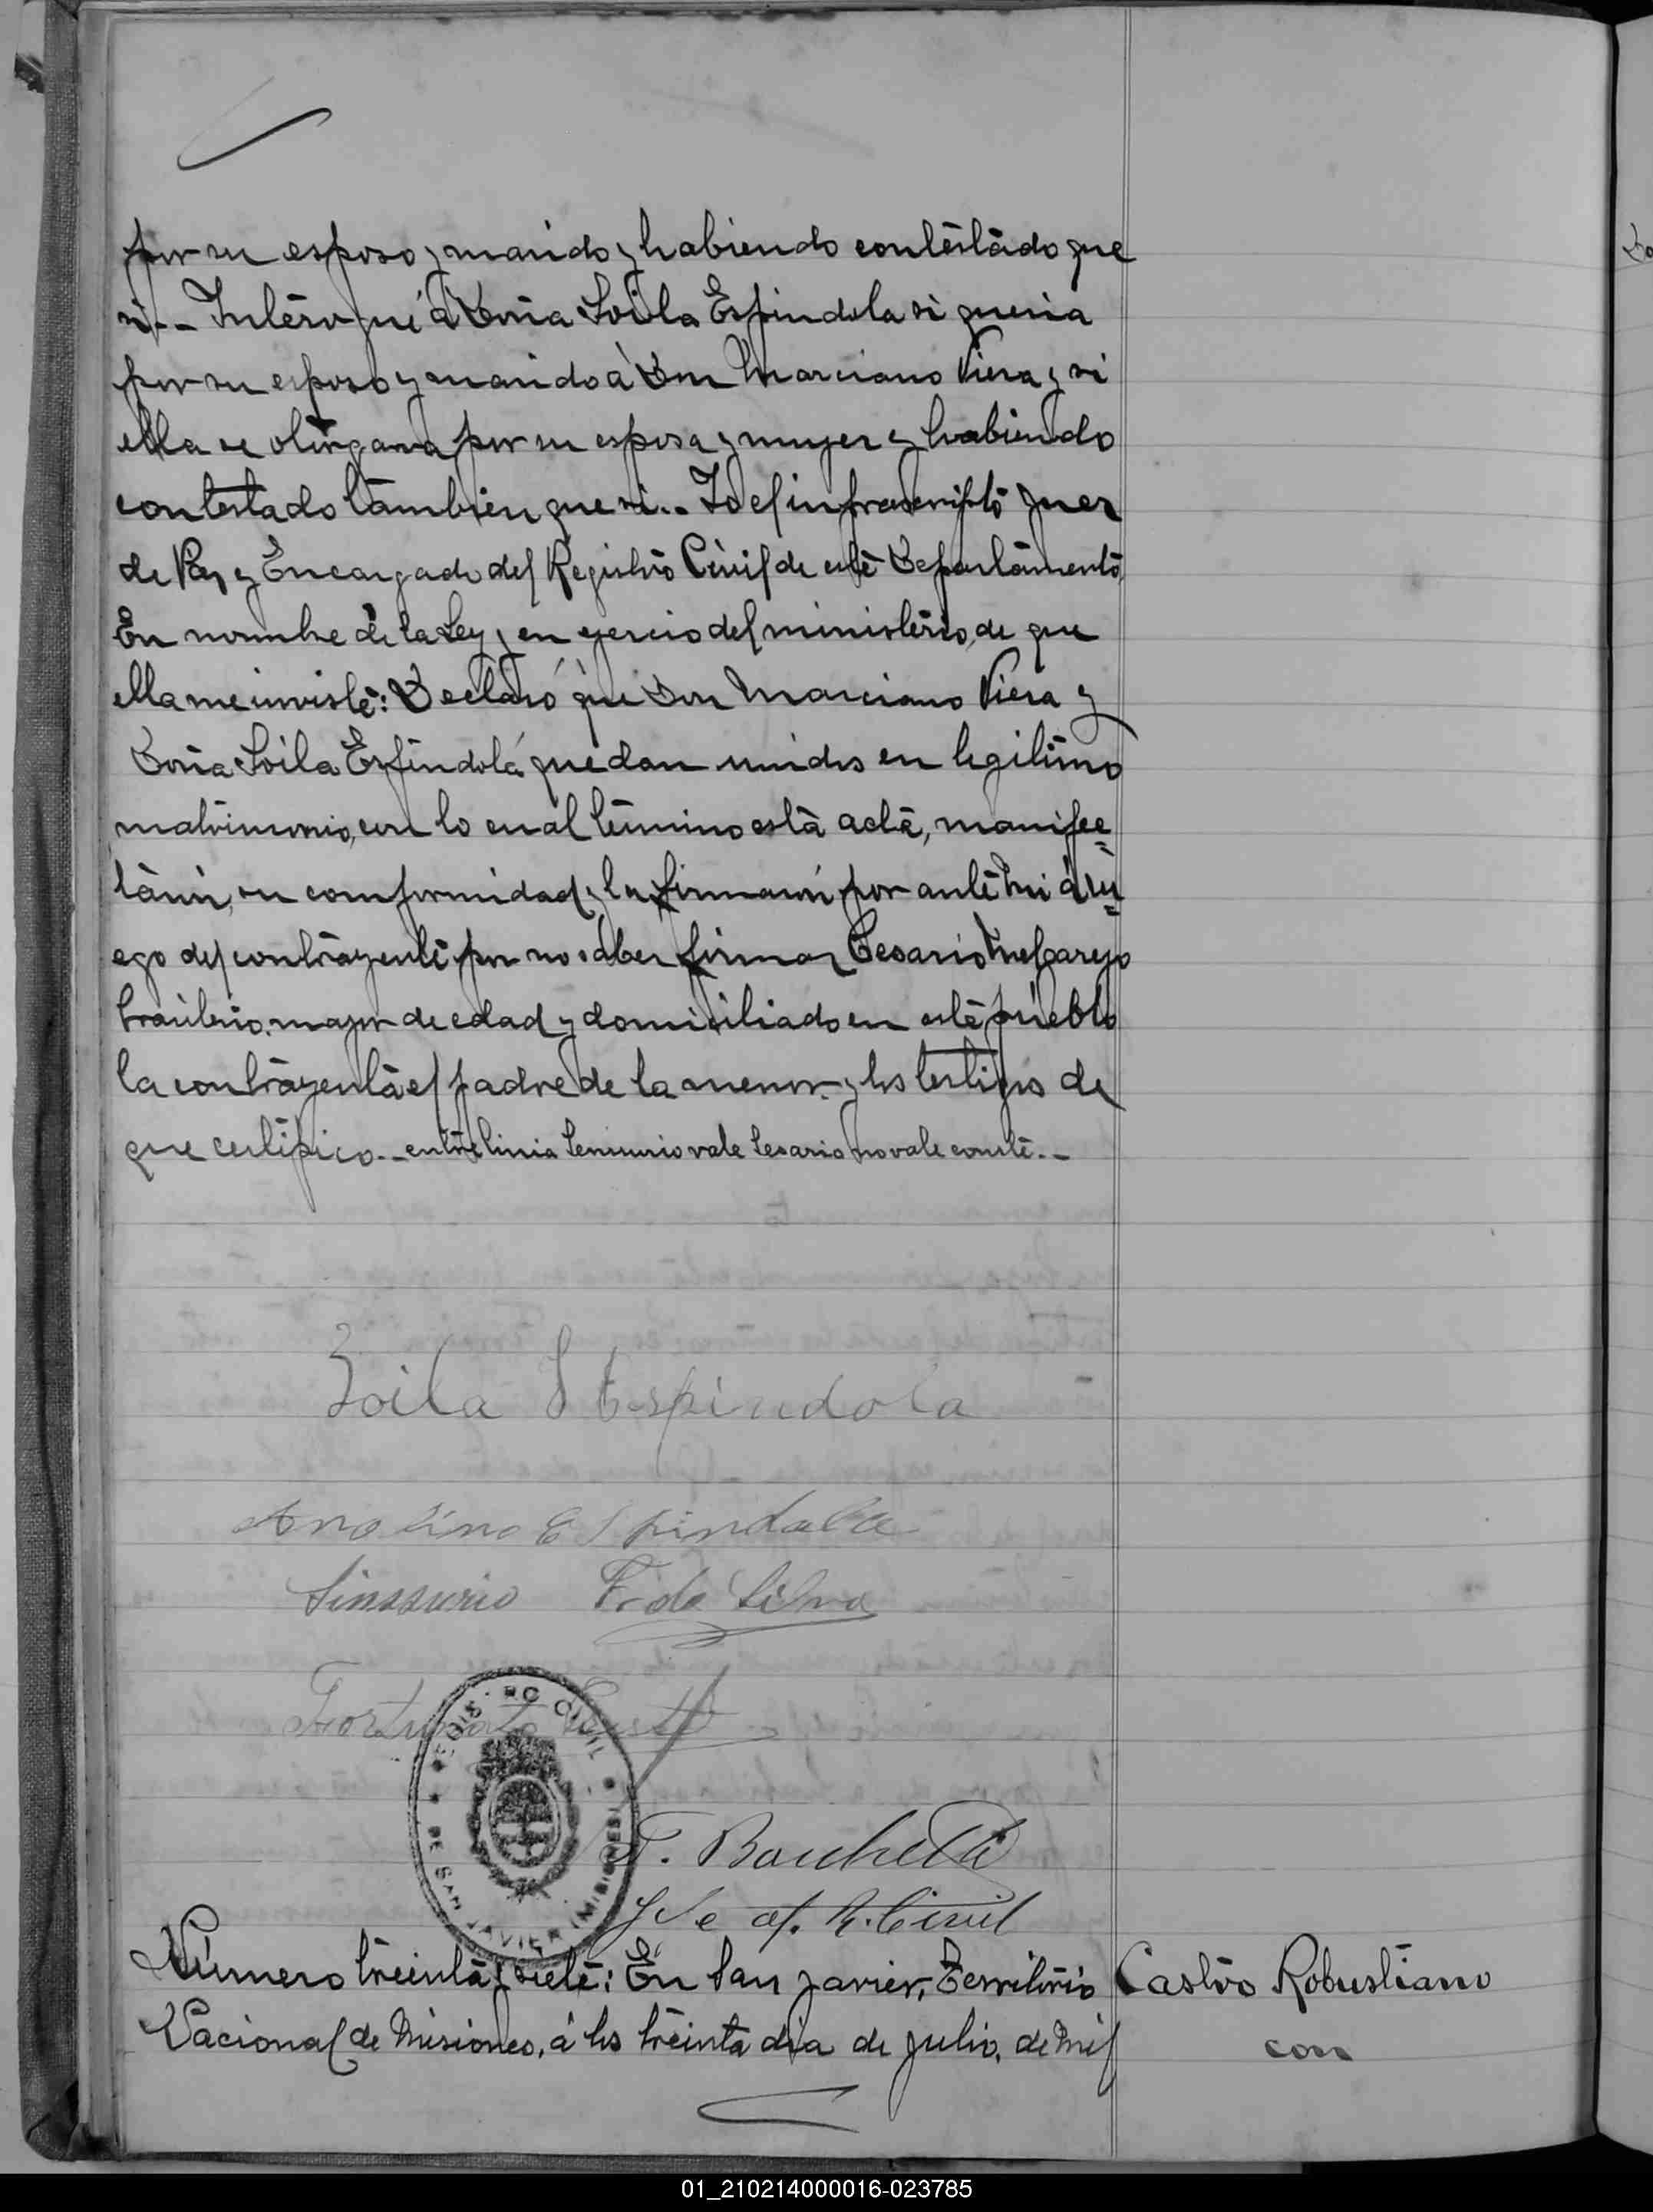 por su esposo y marido y habiendo contestado que
si.. Interogué á Doña Soila Espindola si queria
por su esposo y marido á Don Marciano Viera y si
ella se otorgava por su esposa y mujer y habiendo
contestado tambien que si.. Yo el infrascripto Juez
de Paz y Encargado del Registro Civil de este Departamento,
En nombre de la Ley y en ejercio del ministerio, de que
ella me inviste: Declaró que Don Marciano Viera y
Doña Soila Espindola quedan unidos en legitimo
matrimonio, con lo cual termino esta acta, manifes=
tarón, su conformidad y la firmarón por ante mi á ru=
ego del contrayente por no saber firmar Cesario
brasilerio, mayor de edad y domisiliado en este pueblo
la contrayenta el padre de la menor y los testigos de
que certifico.. entre linia Sensurio vale Cesario no vale conste..
Zoila S Espindola
Espindola
Sinssurio F. da Silva
Fortunato
REGISTRO CIVIL
DE SAN JAVIER (MISIONES)
F. Bacchetti
J. de P. R. Civil
Número treinta y siete: En San Javier, Territorio
Nacional de Misiones, á los treinta dia de Julio, de mil
Castro Robustiano
con
01_210214000016-023785